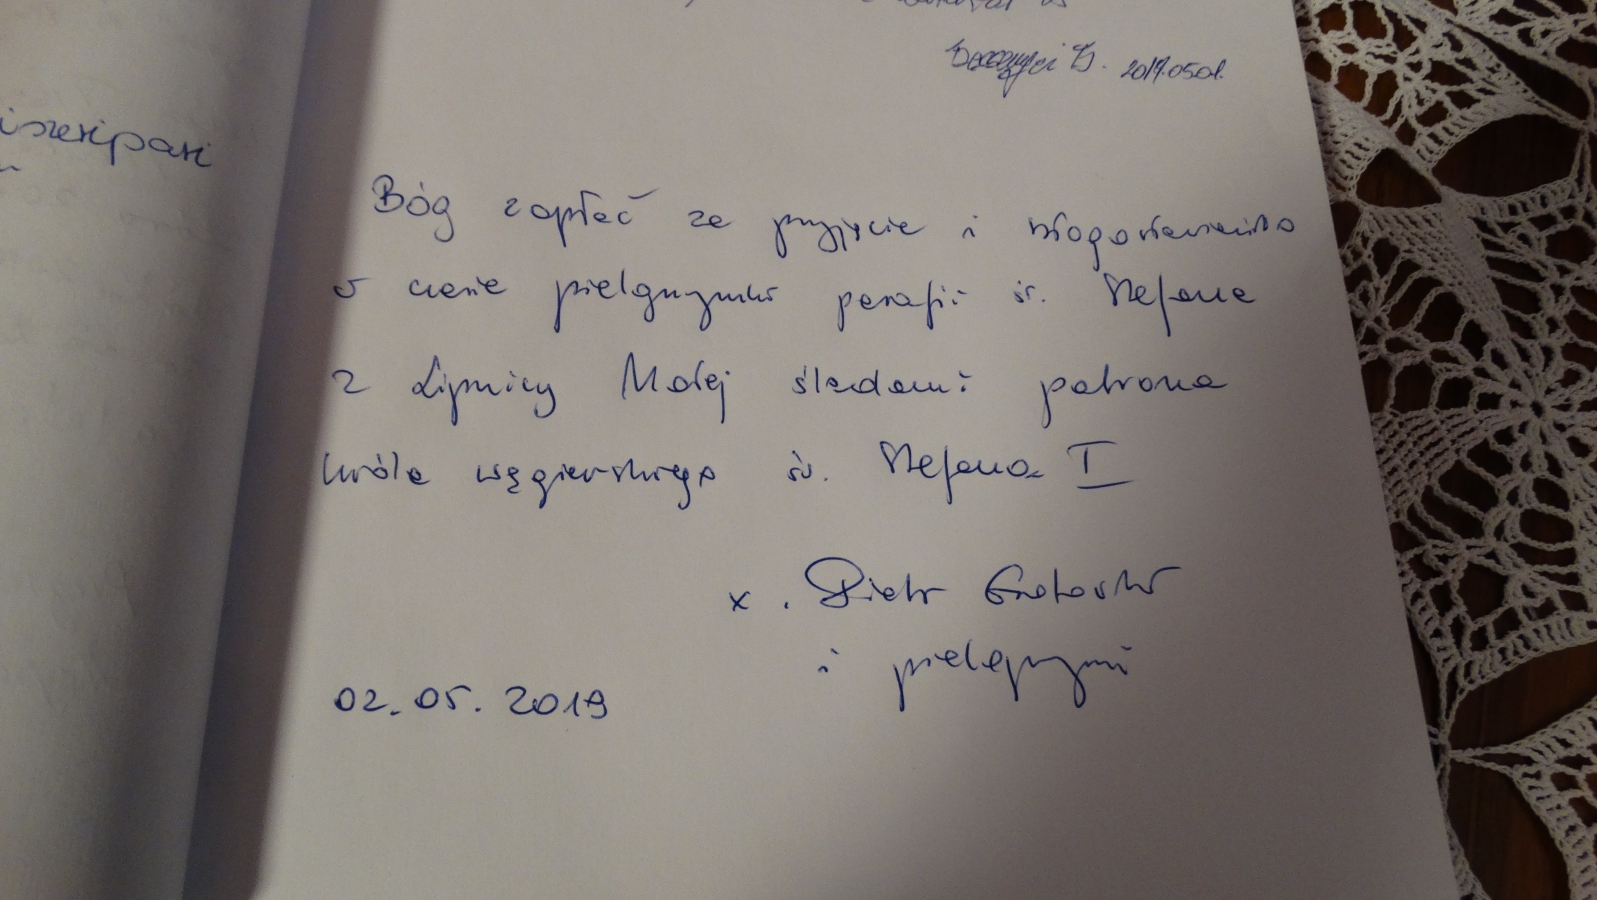 2019.05.01.
Bóg zapłać za przyjęcie i błogosławieństwo
w czasie pielgrzymki parafii św. Stefana
z Lipnicy Małej śladami patrona
króla węgierskiego św. Stefana I
x. Piotr
i pielgrzymi
02.05.2019